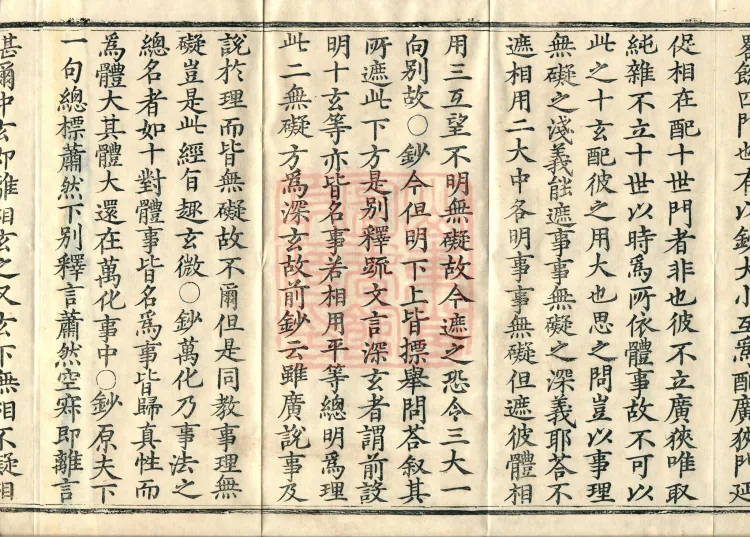 門也有以鈔大小互爲配廣狹門延
促相在配十世門者非也彼不立廣狹唯取
純雜不立十世以時爲所依體事故不可以
此之十玄配彼之用大也思之問豈以事理
無礙之淺義能遮事事無礙之深義耶荅不
遮相用二大中各明事事無礙但遮彼體相
用三互望不明無礙故今遮之恐令三大一
向別故〇鈔今但明下上皆摽舉問荅叙其
所遮此下方是別釋䟽文言深玄者謂前設
明十玄等亦皆名事若相用平等總明爲理
此二無礙方爲深玄故前鈔云雖廣說事及
說於理而皆無礙故不爾但是同教事理無
礙豈是此經旨趣玄微〇鈔萬化乃事法之
總名者如十對體事皆名爲事皆歸真性而
爲體大其體大還在萬化事中〇鈔原夫下
一句總標蕭然下別釋言蕭然空寂即離言
甚爾中玄即離相玄之又玄下無相不礙相